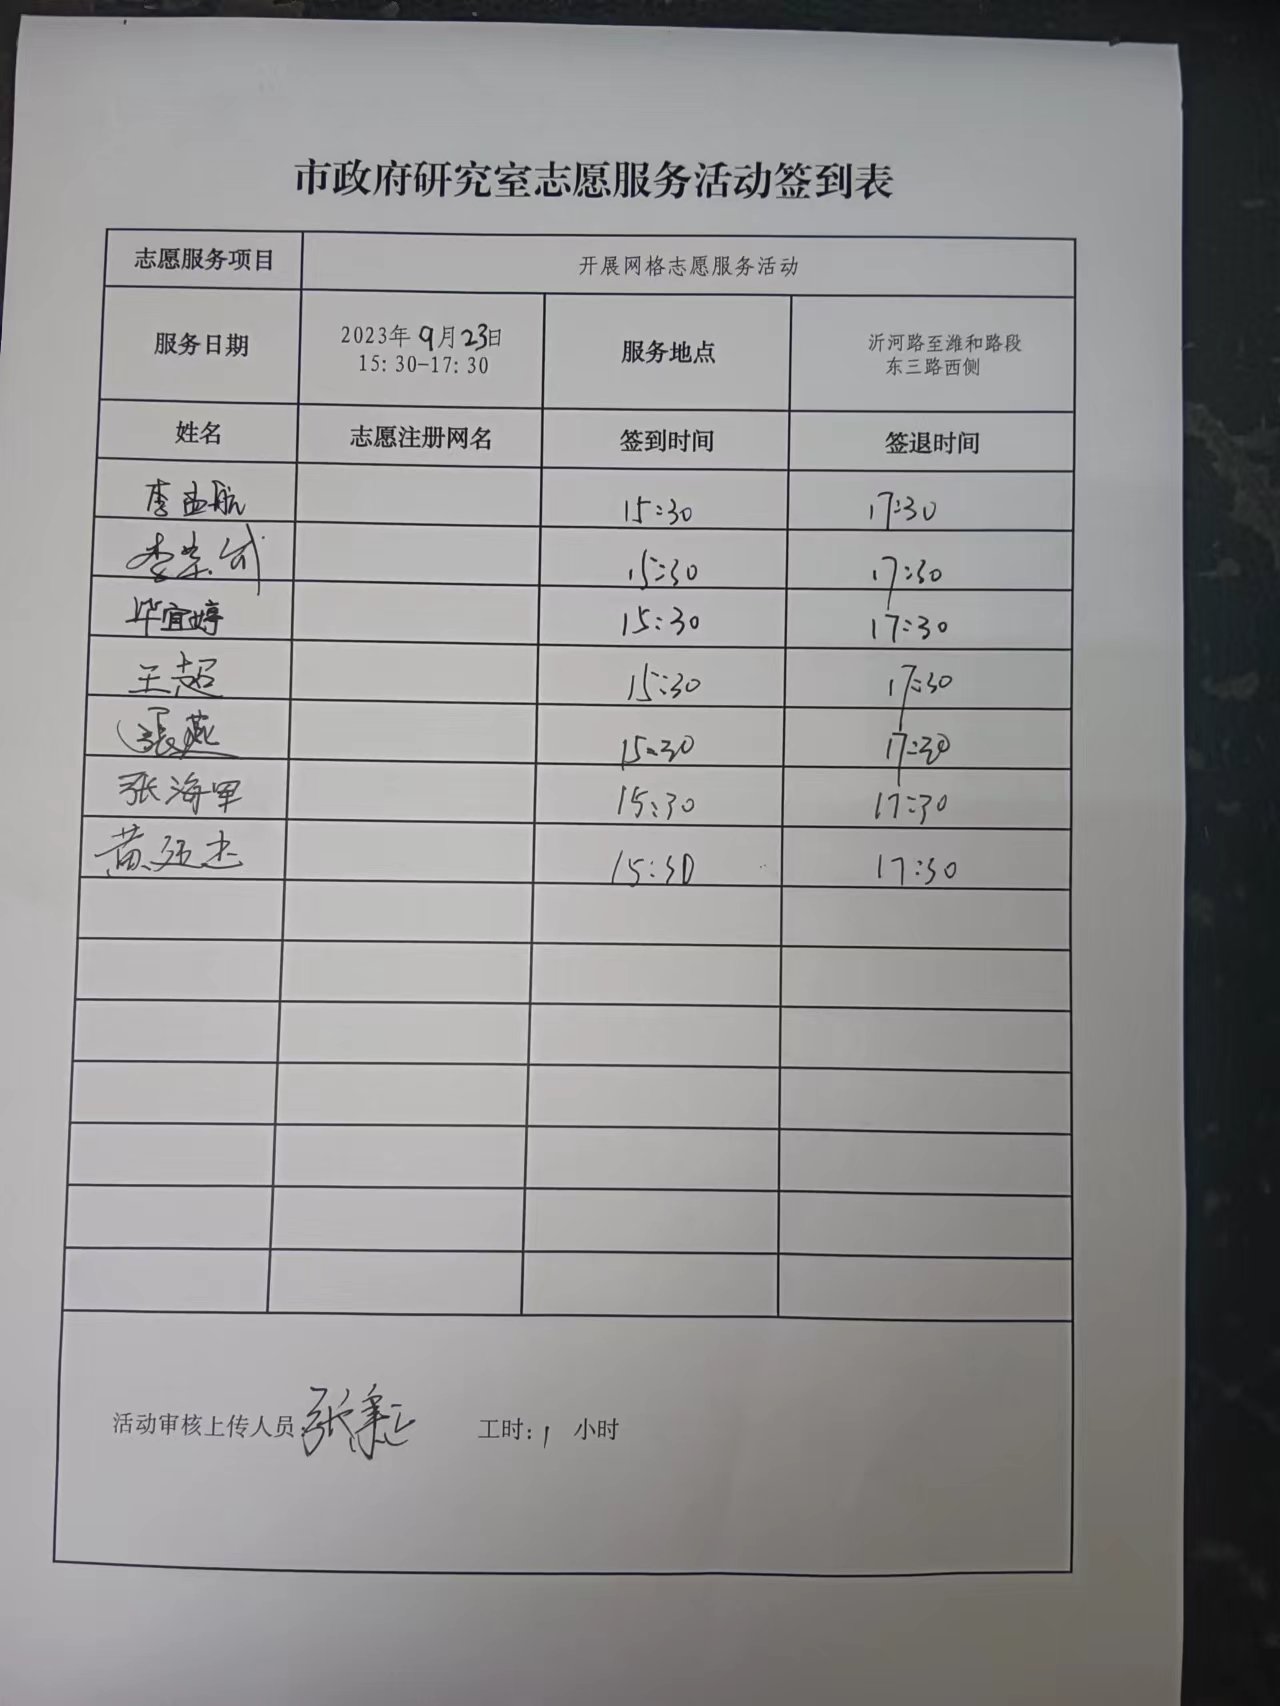 市政府研究室志愿服务活动签到表
志愿服务项目 开展网格志愿服务活动
服务日期 2023年9月23日 15:30-17:30 服务地点 沂河路至潍和路段 东三路西侧
姓名 志愿注册网名 签到时间 签退时间
李孟航 15:30 17:30
李 15:30 17:30
毕宜婷 15:30 17:30
王超 15:30 17:30
張燕 15:30 17:30
张海军 15:30 17:30
黄廷杰 15:30 17:30
活动审核上传人员 张 工时: 1 小时